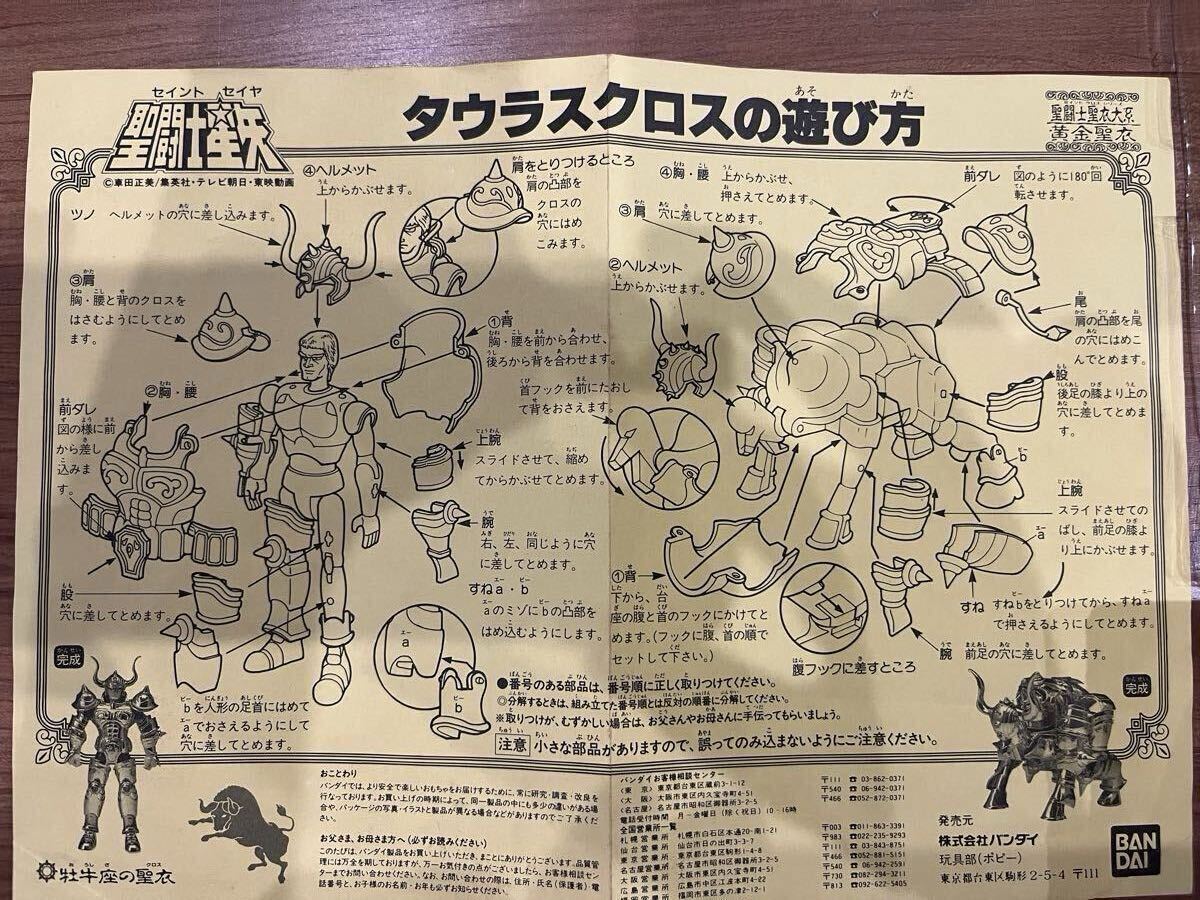 セイント セイヤ
聖闘士星矢
©車田正美/集英社・テレビ朝日・東映動画
タウラスクロスの遊び方
あそ かた
聖闘士聖衣大系
黄金聖衣
④ヘルメット
上からかぶせます。
ツノ ヘルメットの穴に差し込みます。
肩をとりつけるところ
肩の凸部を
クロスの
穴にはめ
こみます。
③肩
胸・腰と背のクロスを
はさむようにしてとめ
ます。
①背
胸・腰を前から合わせ、
後ろから背を合わせます。
首フックを前にたおし
て背をおさえます。
②胸・腰
前ダレ
図の様に前
から差し
込みま
す。
上腕
スライドさせて、縮め
てからかぶせてとめます。
腕
右、左、同じように穴
に差してとめます。
股
穴に差してとめます。
すねa・b
aのミゾにbの凸部を
はめ込むようにします。
a
b
bを人形の足首にはめて
aでおさえるようにして
穴に差してとめます。
完成
牡牛座の聖衣
おうしざ クロス
④胸・腰 上からかぶせ、
押さえてとめます。
前ダレ 図のように180°回
転させます。
③肩 穴に差してとめます。
②ヘルメット
上からかぶせます。
尾
肩の凸部を尾
の穴にはめこ
んでとめます。
股
後足の膝より上の
穴に差してとめま
す。
b
上腕
スライドさせての
ばし、前足の膝よ
り上にかぶせます。
a
①背
下から、台
座の腹と首のフックにかけてと
めます。(フックに腹、首の順で
セットして下さい。)
腹フックに差すところ
すね すねbをとりつけてから、すねa
で押さえるようにしてとめます。
腕 前足の穴に差してとめます。
完成
●番号のある部品は、番号順に正しく取りつけてください。
◎分解するときは、組み立てた番号順とは反対の順番に分解してください。
※取りつけが、むずかしい場合は、お父さんやお母さんに手伝ってもらいましょう。
注意 小さな部品がありますので、誤ってのみ込まないようにご注意ください。
おことわり
バンダイでは、より安全で楽しいおもちゃをお届けするために、常に研究・調査・改良を
行なっております。お買い上げの時期によって、同一製品の中にも多少の違いがある場
合や、パッケージの写真・イラストと製品が異なる場合などがありますのでご了承くだ
さい。
お父さま、お母さま方へ(必ずお読みください)
このたびは、バンダイ製品をお買い上げいただき、まことにありがとうございます。品質管
理には万全を期しておりますが、万一お気付きの点がございましたら、お客様相談セン
ターまでお問い合わせください。なお、お問い合わせの際は、住所・氏名(保護者)電
話番号と、お子様のお名前・お年も必ずお知らせください。
バンダイお客様相談センター
〈東 京〉東京都台東区蔵前3-1-12 〒111 ☎03-862-0371
〈大 阪〉大阪市東区内久宝寺町4-51 〒540 ☎06-942-0371
〈名古屋〉名古屋市昭和区御器所3-2-5 〒466 ☎052-872-0371
電話受付時間 月～金曜日(除く祝日)10～16時
全国営業所一覧
札幌営業所 札幌市白石区本通20-南1-21 〒003 ☎011-863-3391
仙台営業所 仙台市日の出町3-3-7 〒983 ☎022-235-9293
東京営業所 東京都台東区駒形1-4-8 〒111 ☎03-843-8751
名古屋営業所 名古屋市昭和区御器所3-2-5 〒466 ☎052-881-5151
大阪営業所 大阪市東区内久宝寺町4-51 〒540 ☎06-942-2591
広島営業所 広島市中区江波本町4-22 〒730 ☎082-294-3211
福岡営業所 福岡市東区多の津2-12-1 〒813 ☎092-622-5405
発売元
株式会社バンダイ
玩具部(ポピー)
東京都台東区駒形2-5-4 〒111
BAN
DAI